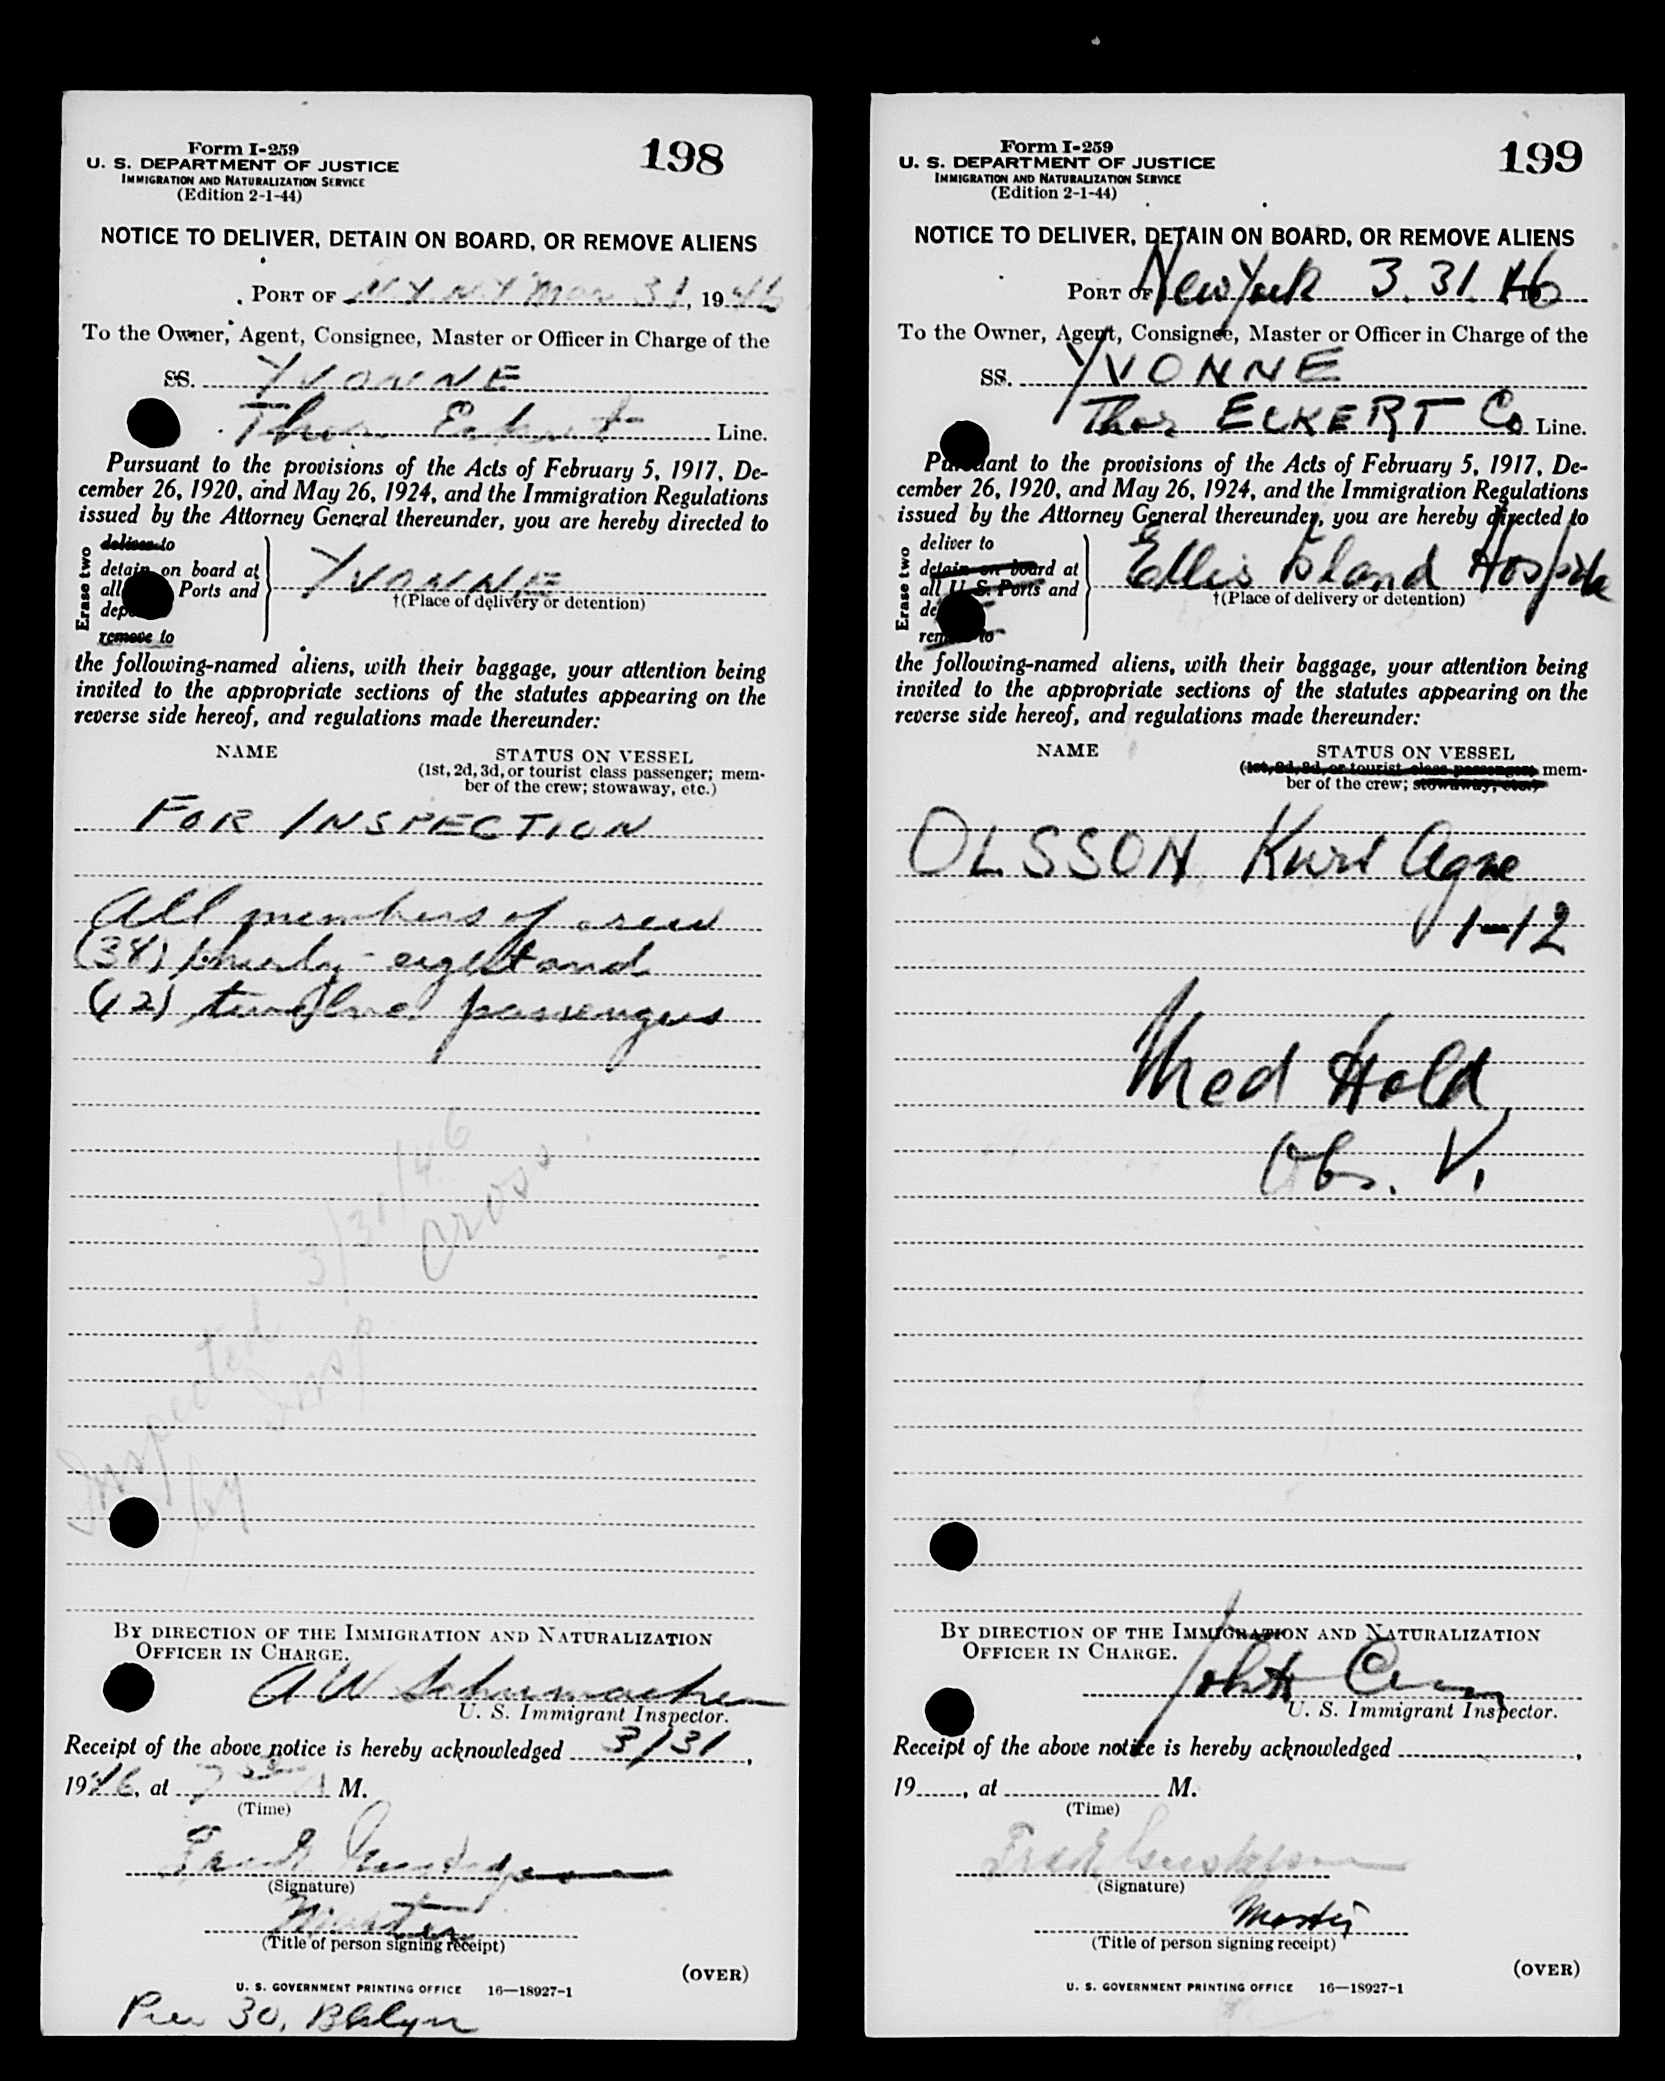 Form I-259
U. S. DEPARTMENT OF JUSTICE
IMMIGRATION AND NATURALIZATION SERVICE
(Edition 2-1-44)
198
NOTICE TO DELIVER, DETAIN ON BOARD, OR REMOVE ALIENS
PORT OF N.Y. N.Y Mar 31, 1946
To the Owner, Agent, Consignee, Master or Officer in Charge of the
SS. YVONNE
Thor Eckert Line.
Pursuant to the provisions of the Acts of February 5, 1917, De-
cember 26, 1920, and May 26, 1924, and the Immigration Regulations
issued by the Attorney General thereunder, you are hereby directed to
Erase two
deliver to
detain on board at
all Ports and
remove to
YVONNE
†(Place of delivery or detention)
the following-named aliens, with their baggage, your attention being
invited to the appropriate sections of the statutes appearing on the
reverse side hereof, and regulations made thereunder:
NAME
STATUS ON VESSEL
(1st, 2d, 3d, or tourist class passenger; mem-
ber of the crew; stowaway, etc.)
FOR INSPECTION
All members of crew
(38) thirty-eight and
(12) twelve passengers
Inspected 3/31/46
by Insp Cross
BY DIRECTION OF THE IMMIGRATION AND NATURALIZATION
OFFICER IN CHARGE.
A W Schumacher
U. S. Immigrant Inspector.
Receipt of the above notice is hereby acknowledged 3/31,
1946, at 7 A M.
(Time)
(Signature)
Master
(Title of person signing receipt)
(OVER)
U. S. GOVERNMENT PRINTING OFFICE 16—18927-1
Pier 30, Bklyn
Form I-259
U. S. DEPARTMENT OF JUSTICE
IMMIGRATION AND NATURALIZATION SERVICE
(Edition 2-1-44)
199
NOTICE TO DELIVER, DETAIN ON BOARD, OR REMOVE ALIENS
PORT OF New York 3.31.46
To the Owner, Agent, Consignee, Master or Officer in Charge of the
SS. YVONNE
Thor ECKERT Co Line.
Pursuant to the provisions of the Acts of February 5, 1917, De-
cember 26, 1920, and May 26, 1924, and the Immigration Regulations
issued by the Attorney General thereunder, you are hereby directed to
Erase two
deliver to
detain on board at
all U. S. Ports and
remove to
Ellis Island Hospital
†(Place of delivery or detention)
the following-named aliens, with their baggage, your attention being
invited to the appropriate sections of the statutes appearing on the
reverse side hereof, and regulations made thereunder:
NAME
STATUS ON VESSEL
(1st, 2d, 3d, or tourist class passenger; mem-
ber of the crew; stowaway, etc.)
OLSSON Kurt Agne
1-12
Med Hold
Obs. V.
BY DIRECTION OF THE IMMIGRATION AND NATURALIZATION
OFFICER IN CHARGE.
U. S. Immigrant Inspector.
Receipt of the above notice is hereby acknowledged
19 , at M.
(Time)
(Signature)
Master
(Title of person signing receipt)
(OVER)
U. S. GOVERNMENT PRINTING OFFICE 16—18927-1